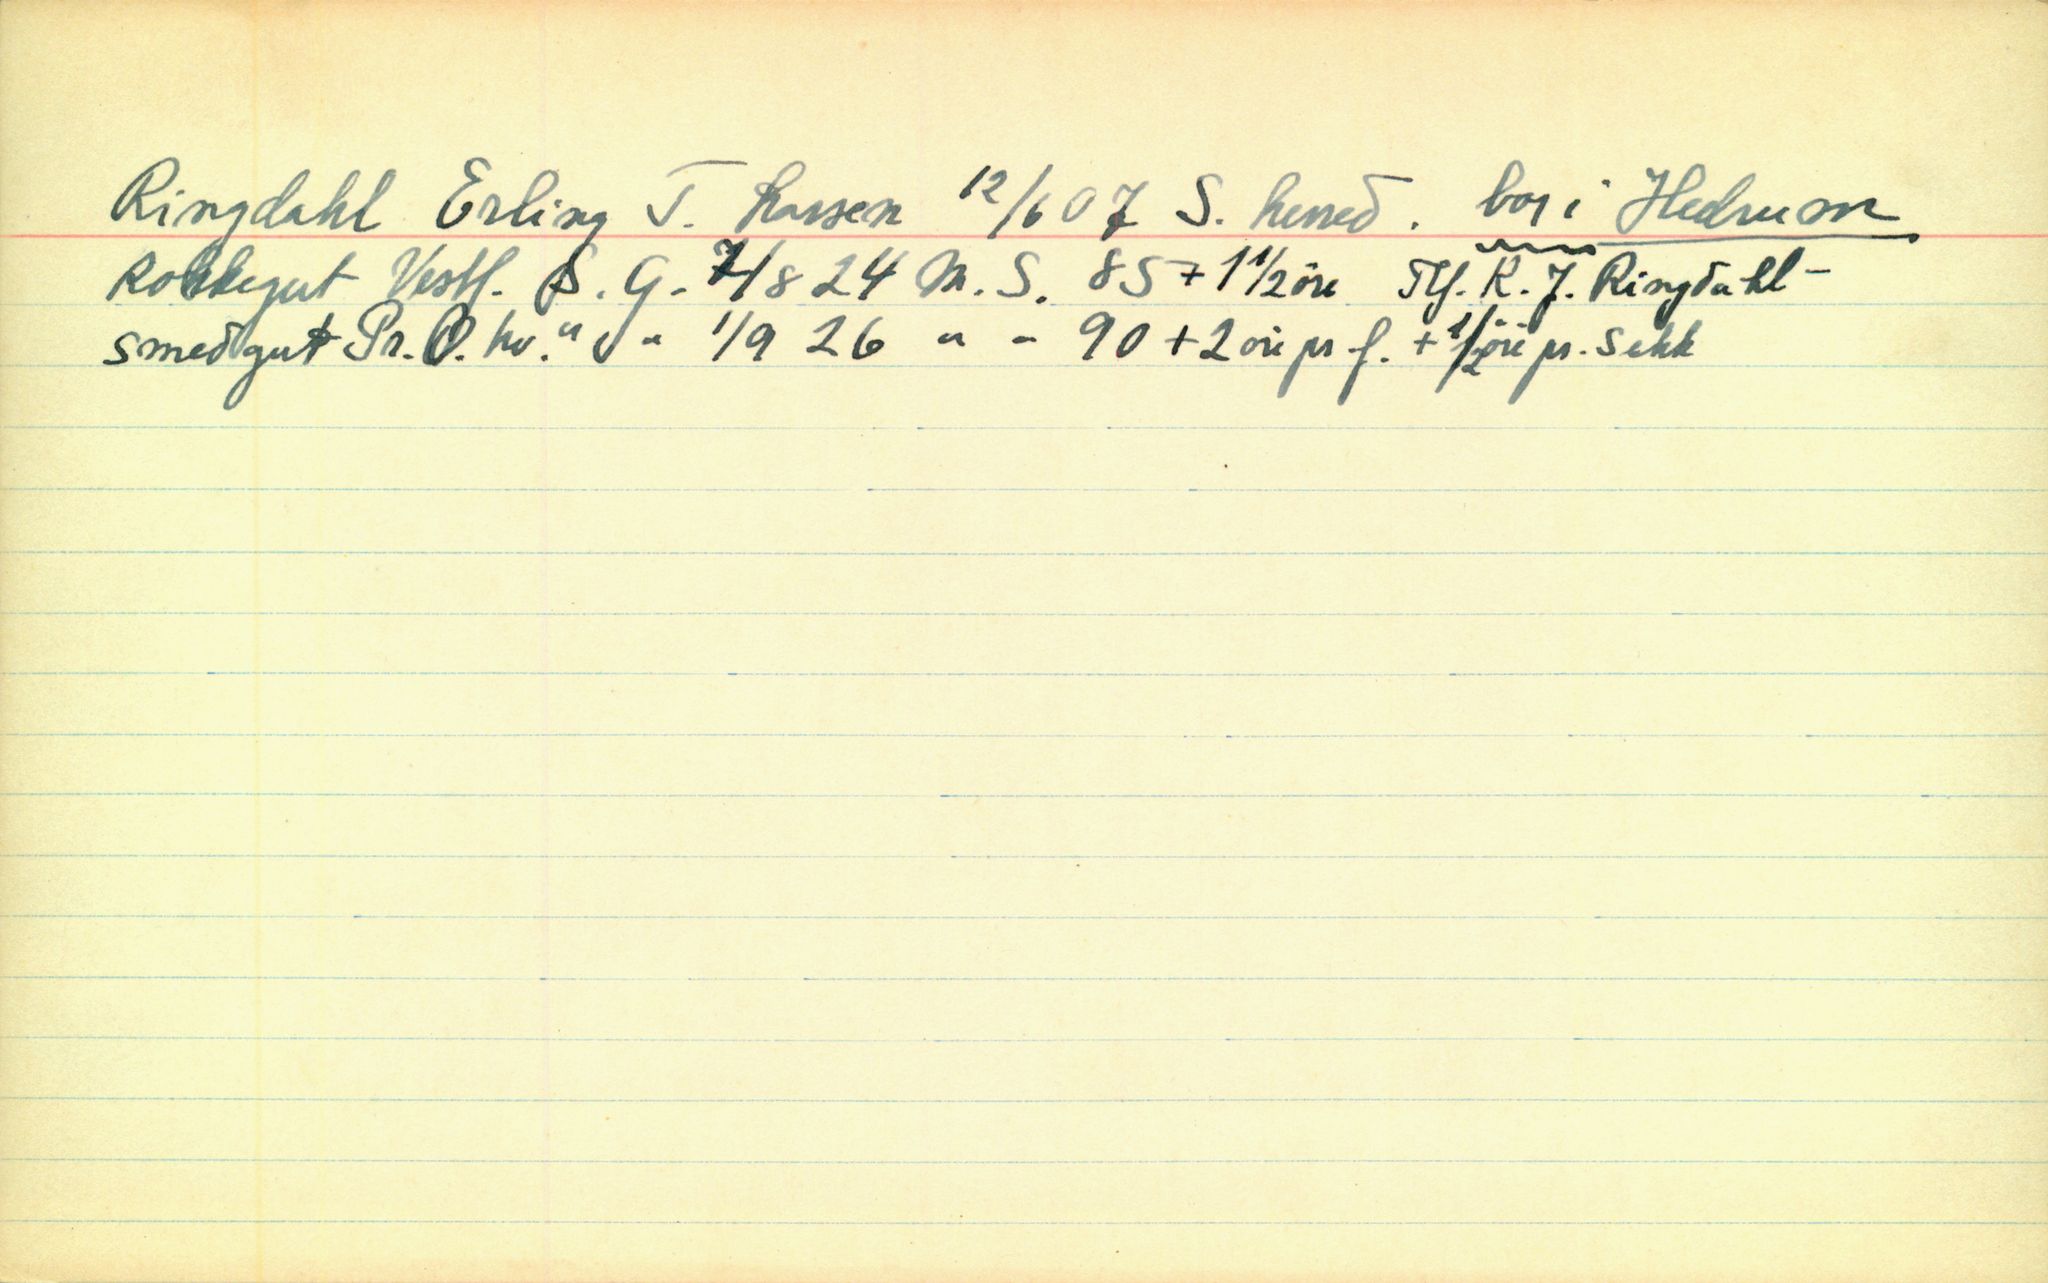 Ringdahl Erling T. Larsen 12/6 07 S. herred. bor i Hedrum
Kokkegut Vestf. S. G. 7/8 24 M. S. 85 + 1 1/2 öre Tlf. K. J. Ringdahl -
smedgut Pr. O. hv. " " 1/9 26 " - 90 + 2 öre pr f. + 1/2 öre pr. sekk